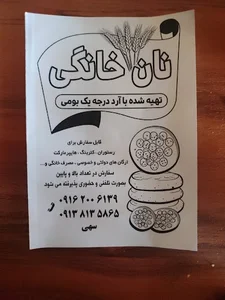 نان خانگی
تهیه شده با آرد درجه یک بومی
قابل سفارش برای
رستوران ـ کترینگ ـ هایپرمارکت
ارگان های دولتی و خصوصی ـ مصرف خانگی و...
سفارش در تعداد بالا و پایین
بصورت تلفنی و حضوری پذیرفته می شود
۰۹۱۶ ۲۰۰ ۶۱۳۹
۰۹۱۳ ۸۱۳ ۵۸۶۵
سهی